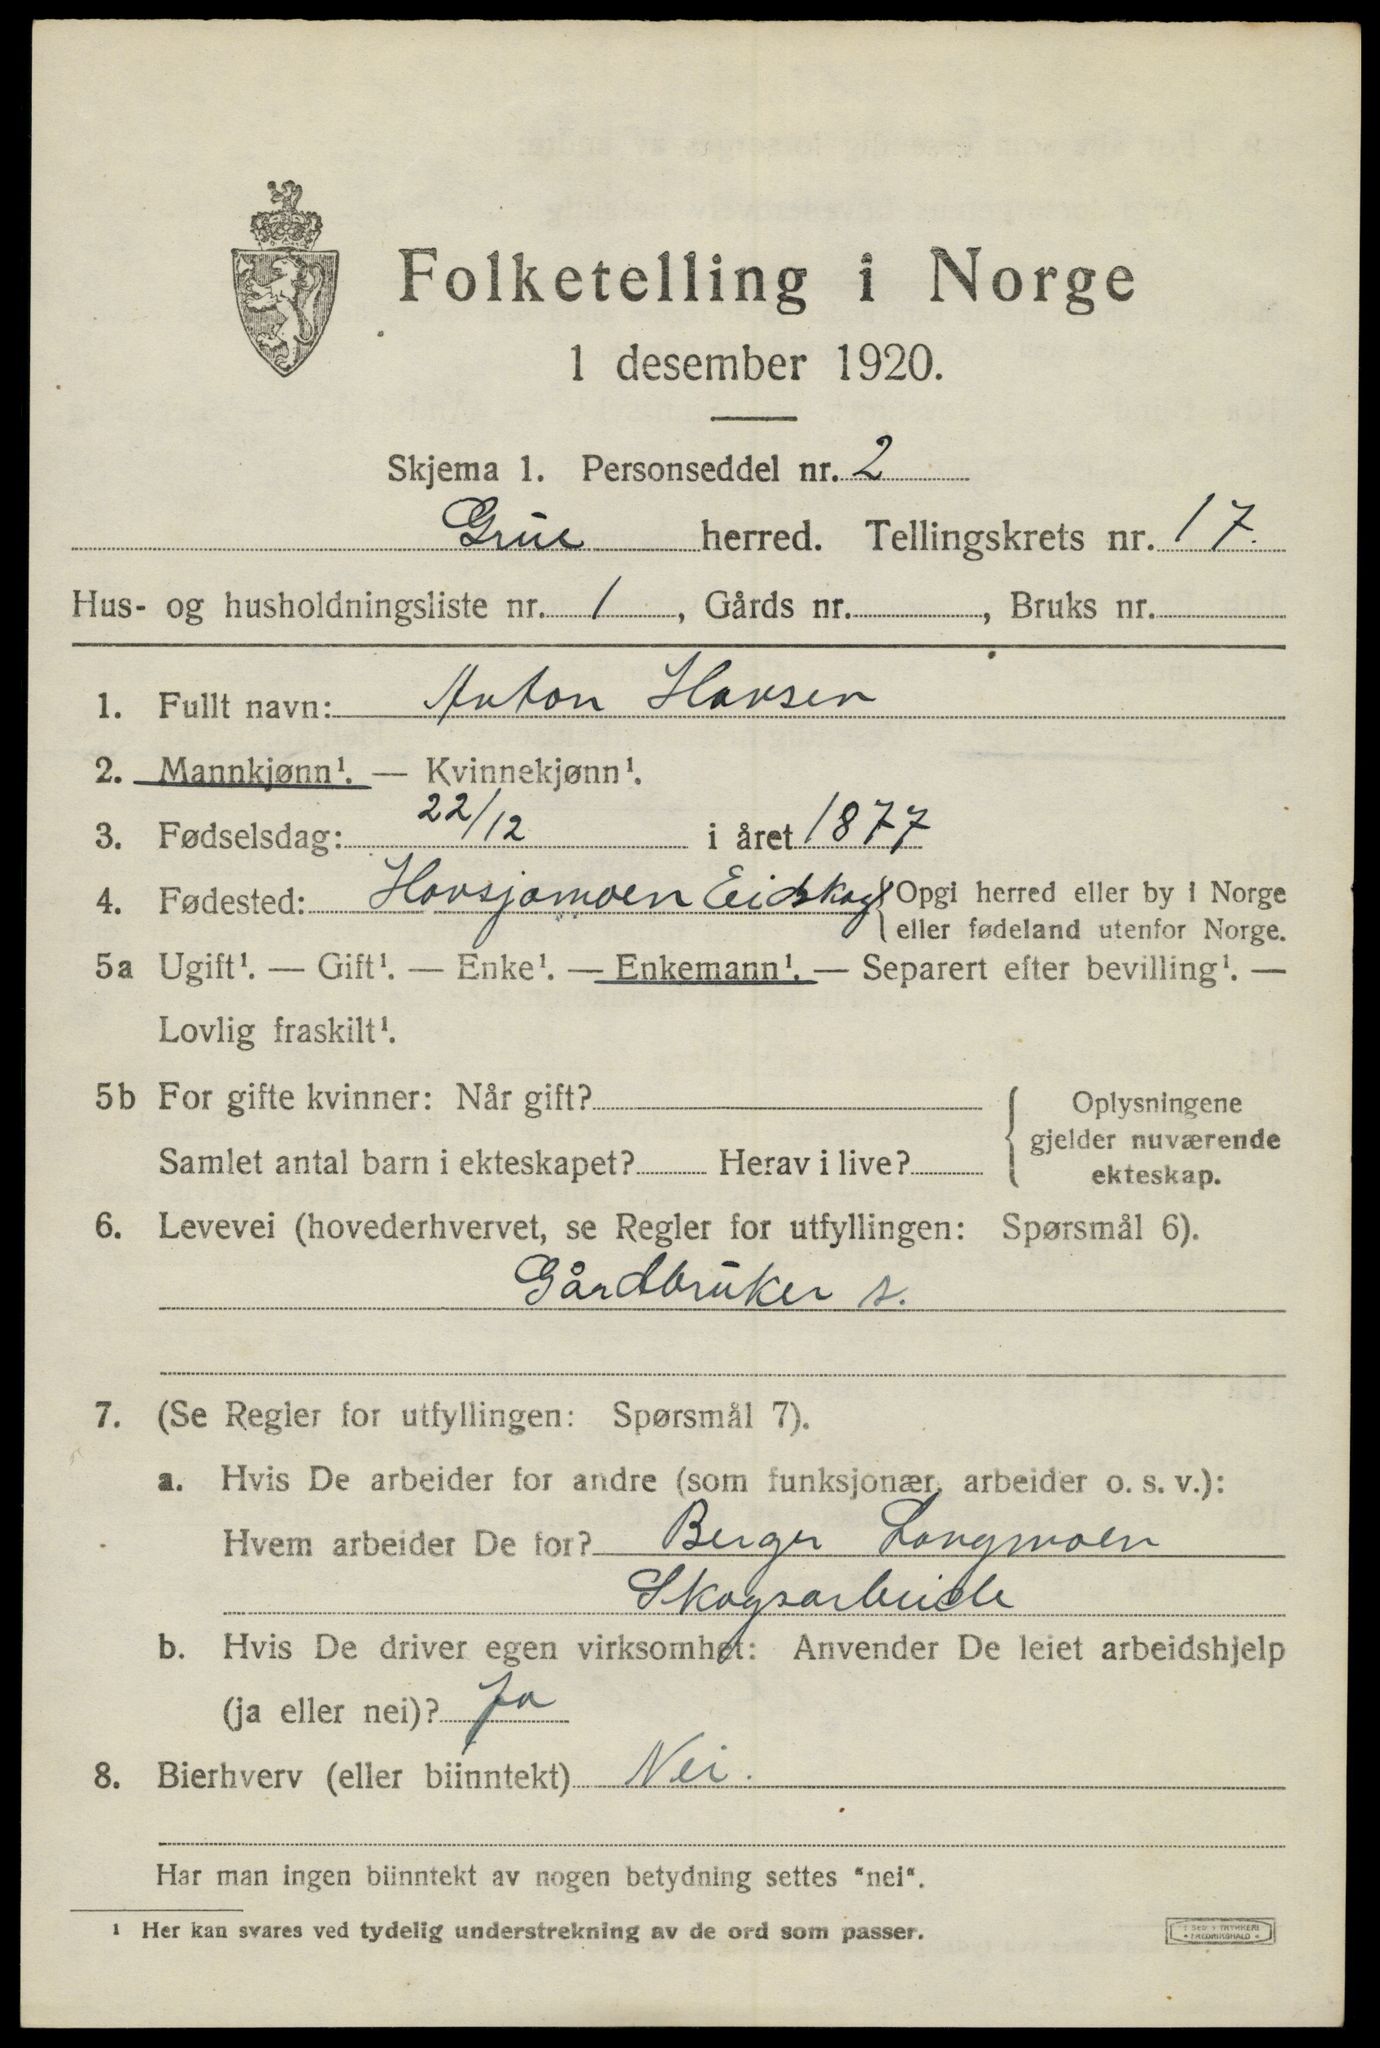 Folketelling i Norge
1 desember 1920.
Skjema 1. Personseddel nr. 2
Grue herred. Tellingskrets nr. 17.
Hus- og husholdningsliste nr. 1, Gårds nr. , Bruks nr.
1. Fullt navn: Anton Hansen
2. Mannkjønn¹. — Kvinnekjønn¹.
3. Fødselsdag: 22/12 i året 1877
4. Fødested: Eidskog {Opgi herred eller by i Norge
eller fødeland utenfor Norge.
5a Ugift¹. — Gift¹. — Enke¹. — Enkemann¹. — Separert efter bevilling¹. —
Lovlig fraskilt¹.
5b For gifte kvinner: Når gift? Oplysningene
gjelder nuværende
Samlet antal barn i ekteskapet? Herav i live? ekteskap.
6. Levevei (hovederhvervet, se Regler for utfyllingen: Spørsmål 6).
Gårdbruker s.
7. (Se Regler for utfyllingen: Spørsmål 7).
a. Hvis De arbeider for andre (som funksjonær, arbeider o. s. v.):
Hvem arbeider De for? Berger Langmoen
Skogsarbeide
b. Hvis De driver egen virksomhet: Anvender De leiet arbeidshjelp
(ja eller nei)? Ja
8. Bierhverv (eller biinntekt) Nei.
Har man ingen biinntekt av nogen betydning settes "nei".
¹ Her kan svares ved tydelig understrekning av de ord som passer.